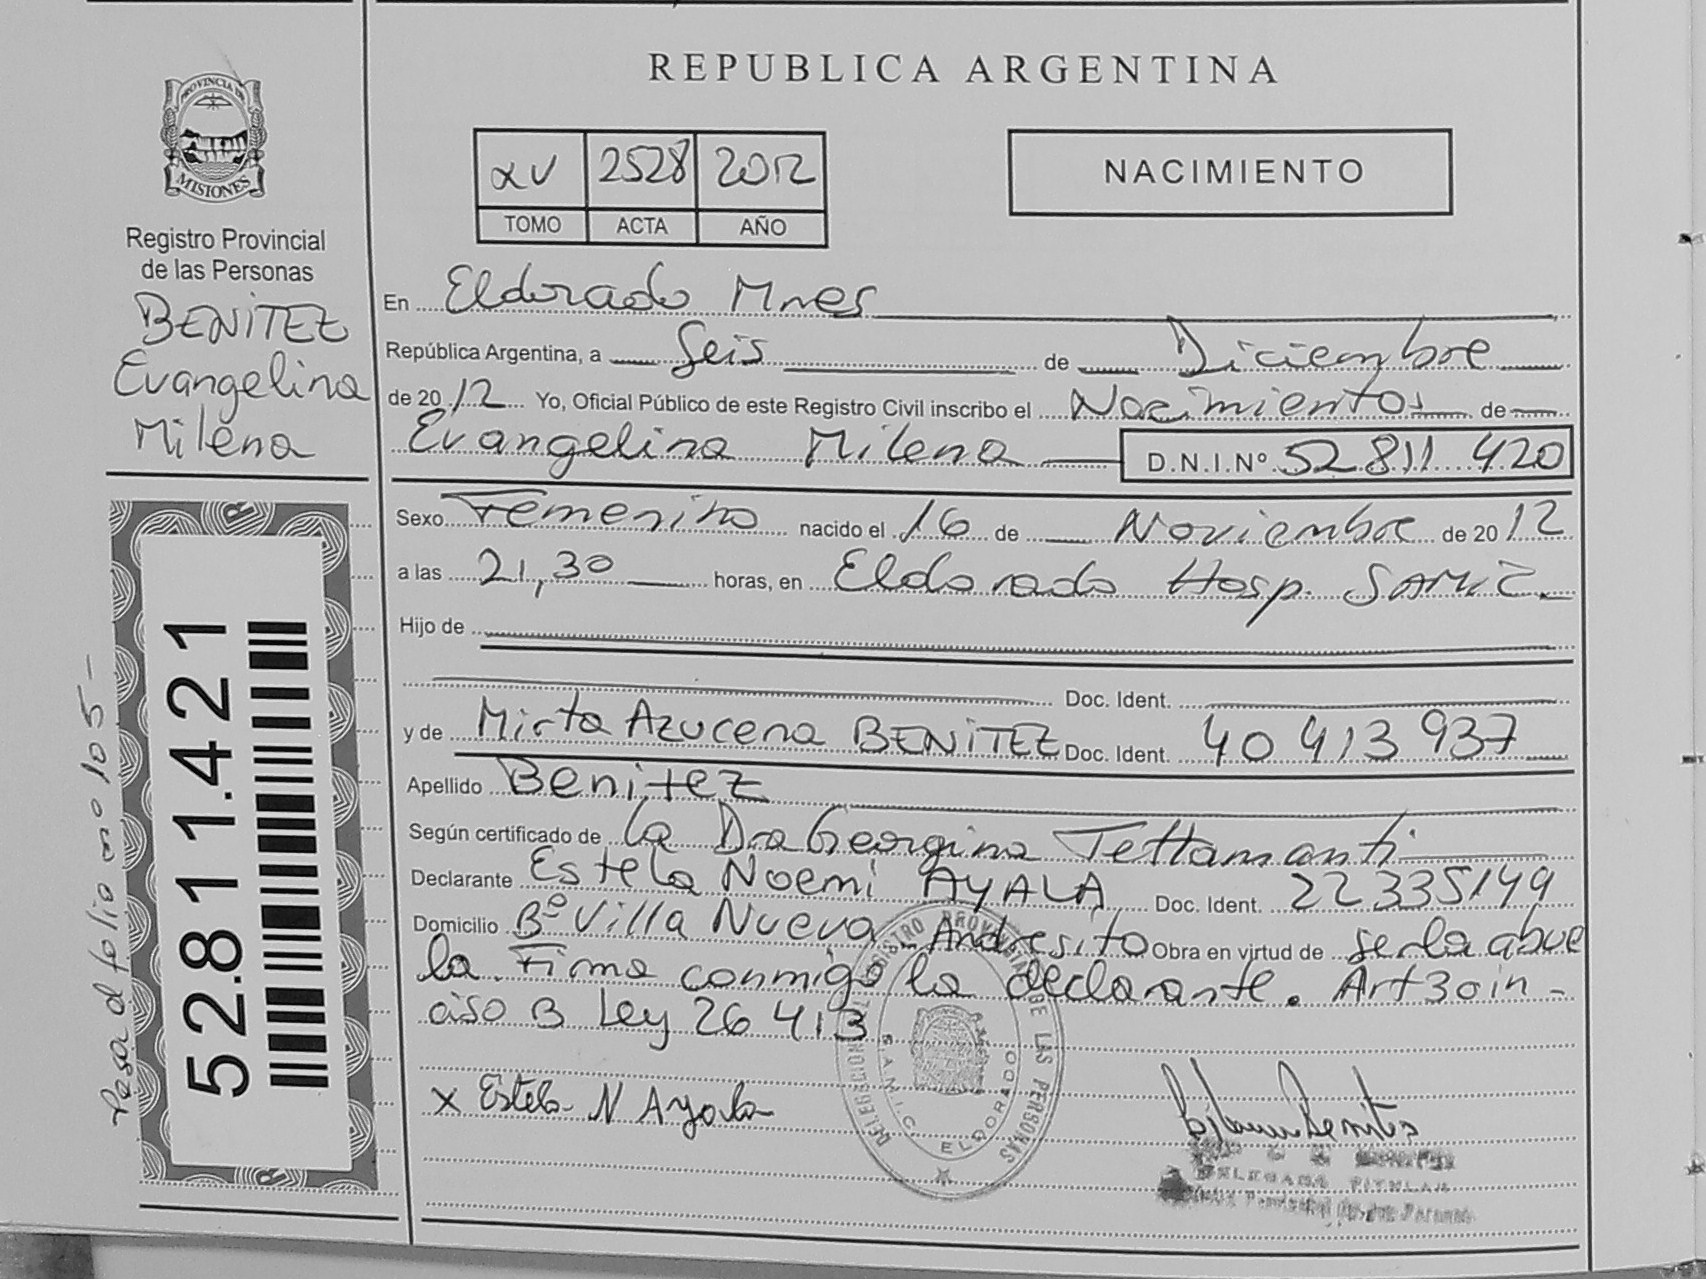 PROVINCIA DE
MISIONES
Registro Provincial
de las Personas
BENITEZ
Evangelina
Milena
52.811.421
Pasa al folio nº 105-
REPUBLICA ARGENTINA
XV 2528 2012
TOMO ACTA AÑO
NACIMIENTO
En Eldorado Mnes
República Argentina, a Seis de Diciembre
de 2012 Yo, Oficial Público de este Registro Civil inscribo el Nacimientos de
Evangelina Milena D.N.I.Nº 52 811 420
Sexo Femenino nacido el 16 de Noviembre de 2012
a las 21,30 horas, en Eldorado Hosp. SAMIC
Hijo de
Doc. Ident.
y de Mirta Azucena BENITEZ Doc. Ident. 40 413 937
Apellido Benitez
Según certificado de la Dra Georgina Tettamanti
Declarante Estela Noemi AYALA Doc. Ident. 22 335149
Domicilio Bº Villa Nueva - Andresito Obra en virtud de ser la abue
la. Firma conmigo la declarante. Art 30 in-
ciso B Ley 26 413
x Estela N Ayala
DELEGACION REGISTRO PROVINCIAL DE LAS PERSONAS
S.A.M.I.C. ELDORADO
Benitez
DELEGADA TITULAR